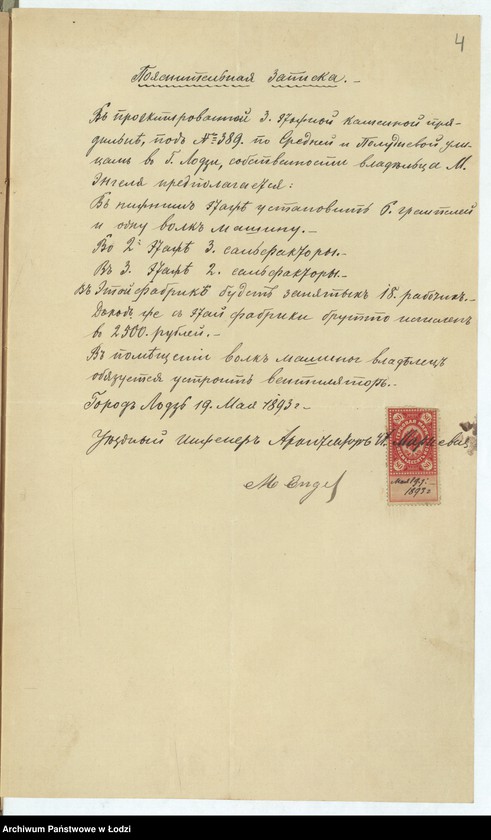 4
Пояснительная записка. –
Въ проектированной 3. этажной каменной пря-
дильнѣ, подъ № 389. по Средней и Полудневой ули-
цамъ в г. Лодзи, собственности владѣльца М.
Энгеля предполагается:
Въ нижнимъ этажѣ установить 6. гремплей
и одну волкъ машину. –
Во 2.м этажѣ 3. сальфакторы. –
Въ 3. этажѣ 2. сальфакторы. –
Въ этой фабрикѣ будетъ занятыхъ 18. рабочихъ. –
Доходъ же съ этой фабрики брутто исчисленъ
в 2500. рублей. –
Въ помѣщеніи волкъ машины владѣлецъ
обязуется устроить вентиляторъ. –
Городъ Лодзь 19. Мая 1893 г –
Уѣздный инженеръ Архитекторъ
M Engel
Мая 19 д.
1893 г
Archiwum Państwowe w Łodzi